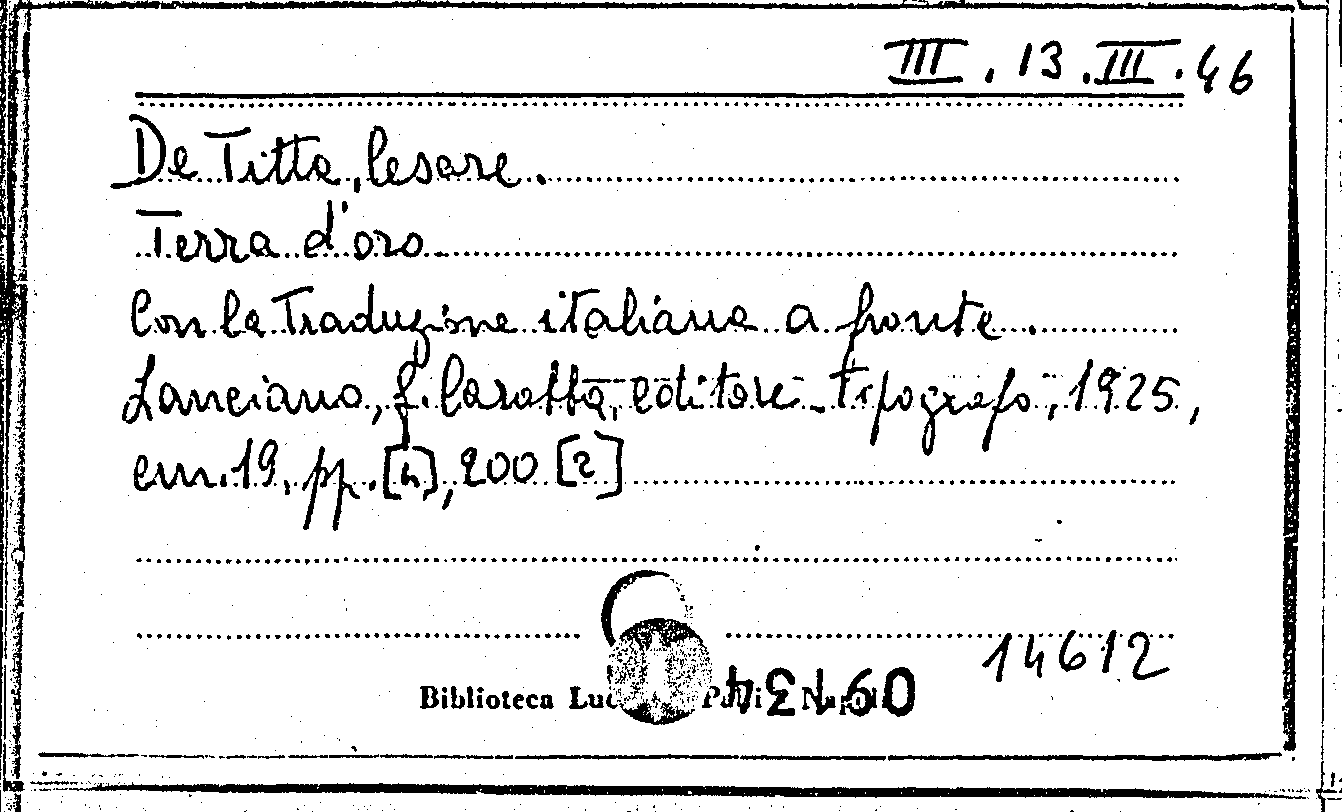 III. 13. III. 46
De Titta, Cesare.
Terra d'oro
Con la traduzione italiana a fronte.
Lanciano, G. Carabba, editore-tipografo, 1925,
cm. 19, pp. [4], 200 [2]
14612
Biblioteca